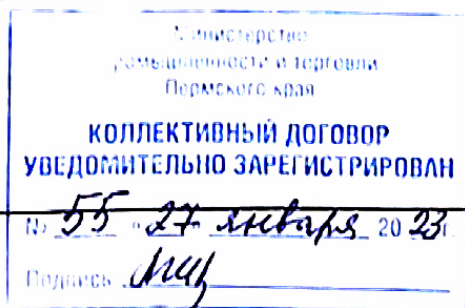 Министерство
промышленности и торговли
Пермского края
КОЛЛЕКТИВНЫЙ ДОГОВОР
УВЕДОМИТЕЛЬНО ЗАРЕГИСТРИРОВАН
№ 55 "27" января 2023г.
Подпись